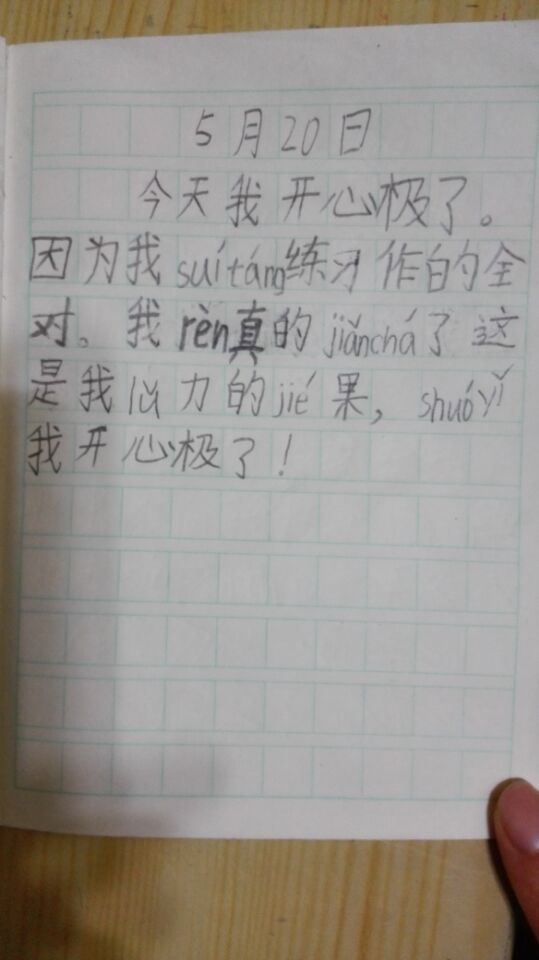 5月20日
今天我开心极了。
因为我suítáng练习作的全
对。我rèn真的jiǎnchá了这
是我lǜ力的jié果，shuóyǐ
我开心极了！